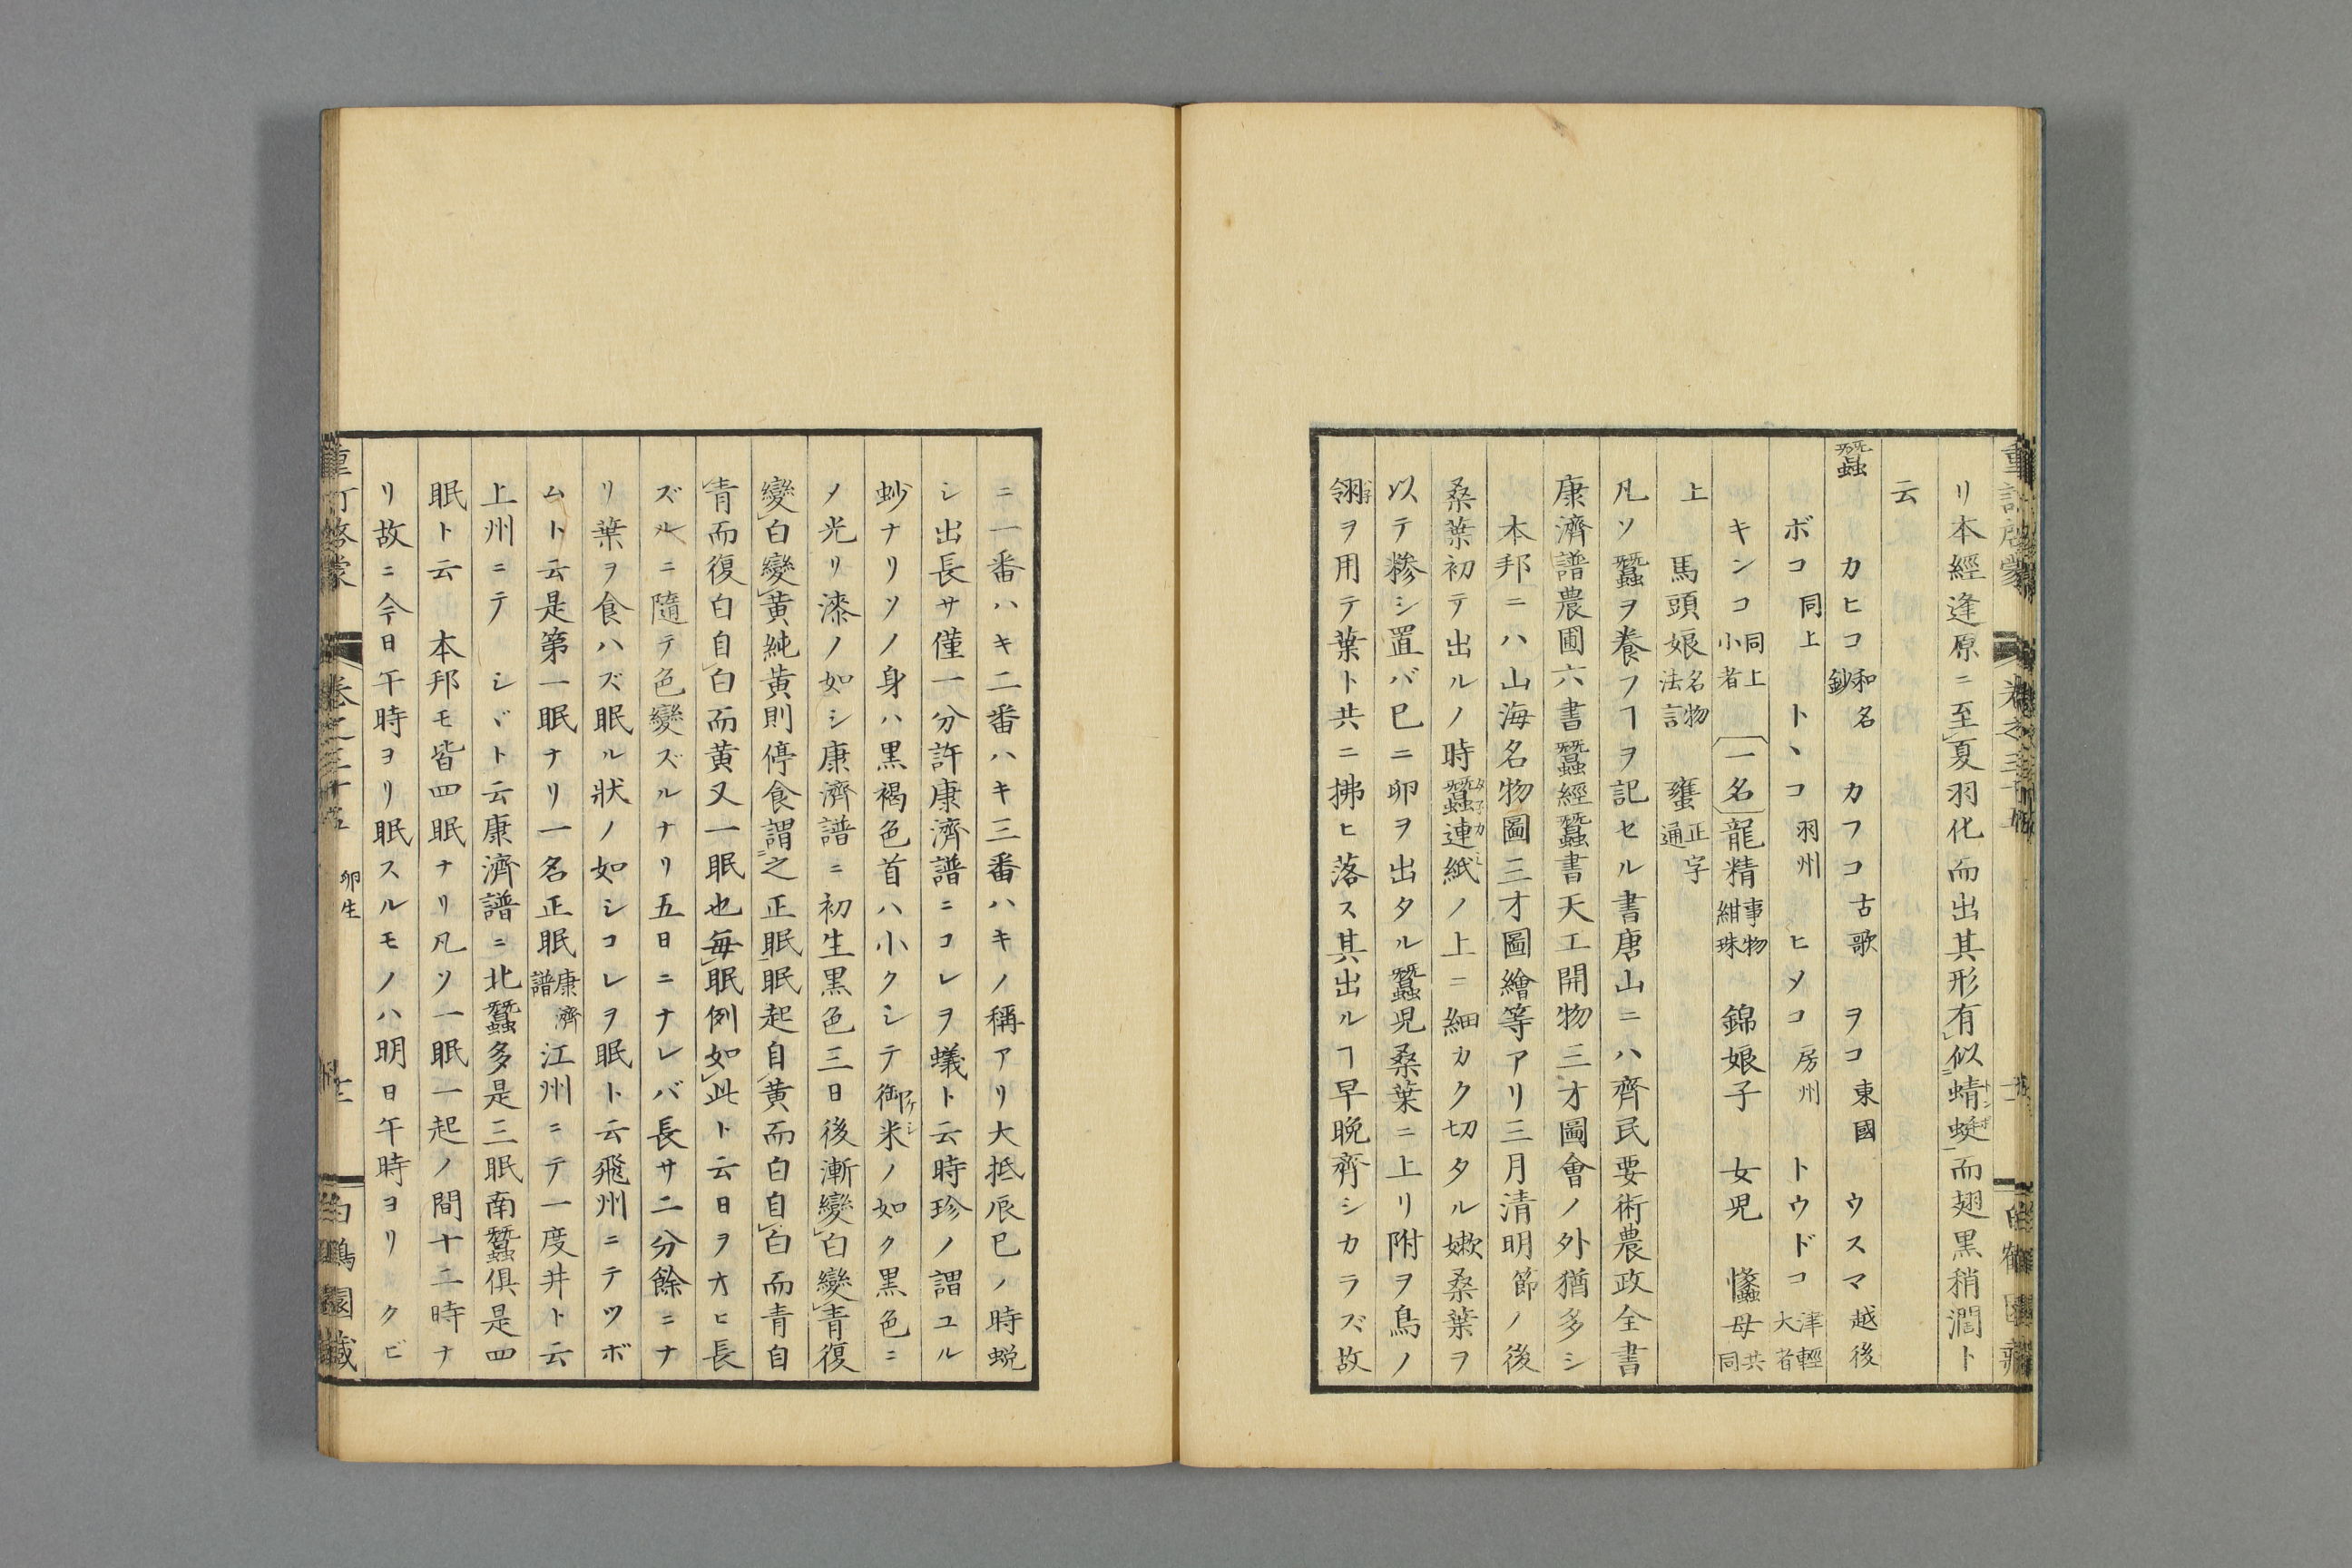 リ本經逢原ニ至夏羽化而出其形有似蜻蜓而翅黒稍濶ト
云
蠶 カヒコ 和名鈔 カフコ 古歌 ヲコ 東國 ウスマ 越後
ボコ 同上 トヽコ 羽州 ヒメコ 房州 トウドコ 津輕大者
キンコ 同上小者 一名 龍精 事物紺珠 錦娘子 女児 蟁母 共同
上 馬頭娘 名物法言 正字通
凡ソ蠶ヲ養フヿヲ記セル書唐山ニハ齊民要術農政全書
康濟譜農圃六書蠶經蠶書天工開物三才圖會ノ外猶多シ
本邦ニハ山海名物圖三才圖繪等アリ三月清明節ノ後
桑葉初テ出ルノ時蠶連紙ノ上ニ細カク切タル嫩桑葉ヲ
以テ糝シ置バ已ニ卵ヲ出タル蠶児桑葉ニ上リ附ヲ鳥ノ
翎ヲ用テ葉ト共ニ拂ヒ落ス其出ルヿ早晩齊シカラズ故
ニ一番ハキ二番ハキ三番ハキノ稱アリ大抵辰巳ノ時蛻
シ出長サ僅一分許康濟譜ニコレヲ蟻ト云時珍ノ謂ユル
䖢ナリソノ身ハ黒褐色首ハ小クシテ御米ノ如ク黒色ニ
ノ光リ漆ノ如シ康濟譜ニ初生黒色三日後漸變白變青復
變白變黄純黄則停食謂之正眠眠起自黄而白自白而青自
青而復白自白而黄又一眠也毎眠例如此ト云日ヲ大ヒ長
ズルニ隨テ色變ズルナリ五日ニナレバ長サ二分餘ニナ
リ葉ヲ食ハズ眠ル狀ノ如シコレヲ眠ト云飛州ニテツボ
ムト云是第一眠ナリ一名正眠 康濟譜 江州ニテ一度井ト云
上州ニテ シヾト云康濟譜ニ北蠶多是三眠南蠶俱是四
眠ト云 本邦モ皆四眠ナリ凡ソ一眠一起ノ間十二時ナ
リ故ニ今日午時ヨリ眠スルモノハ明日午時ヨリ クビ
重訂啓蒙 巻之三十五 卵生